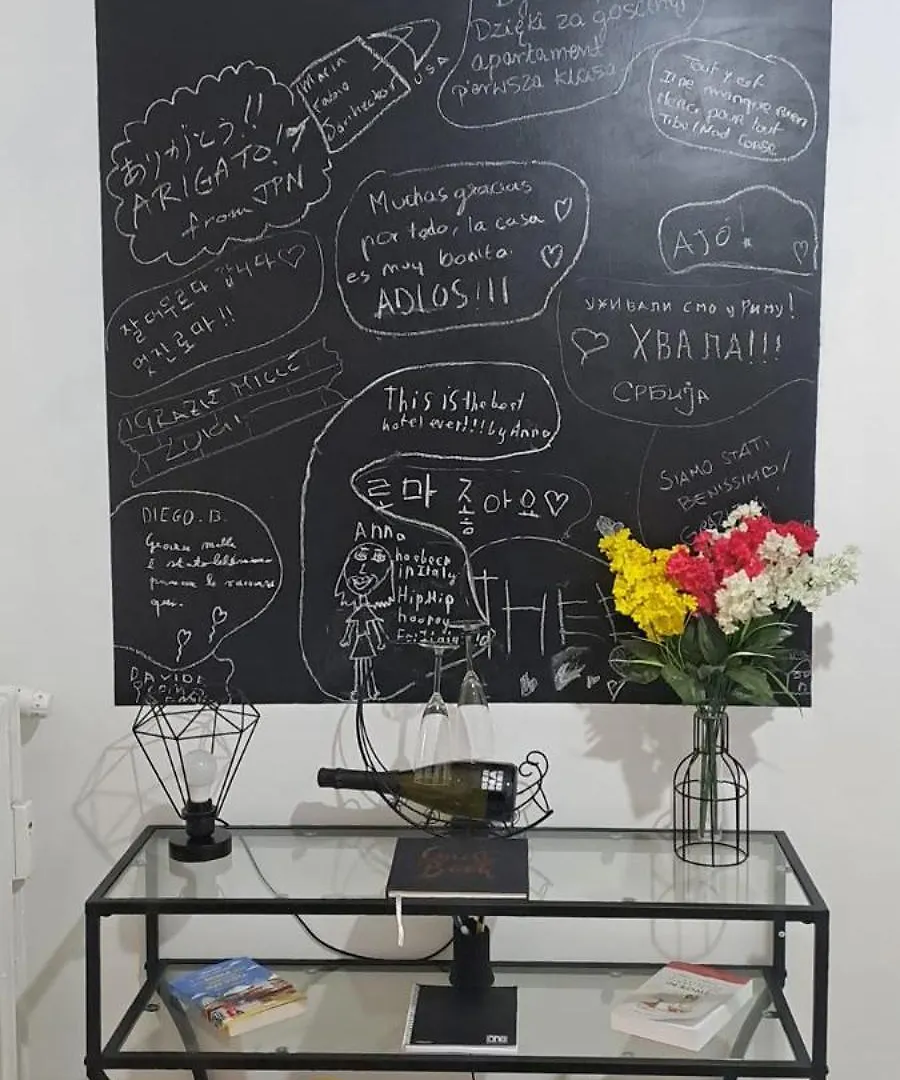 Dzięki za gościnny
apartament
pierwsza klasa
Marin
Fabio
USA
ありがとう!!
ARIGATO!!
from JPN
Tout y est
Il ne manque rien
Merci pour tout
Muchas gracias
por todo, la casa
es muy bonita.
ADIOS!!!
AJÓ!
잘 머무르다 갑니다♡
멋진 로마!!
УЖИВАЛИ СМО У РИМУ!
ХВАЛА!!!
СРБИЈА
GRAZIE MILLE
This is the best
hotel ever!!! by Anna
로마 좋아요♡
SIAMO STATI
BENISSIMO!
DIEGO.B.
Grazie mille
è stato bellissimo
Anna
has been
in Italy
Hip Hip
hooray
THE
DAVIDE
Guest
Book